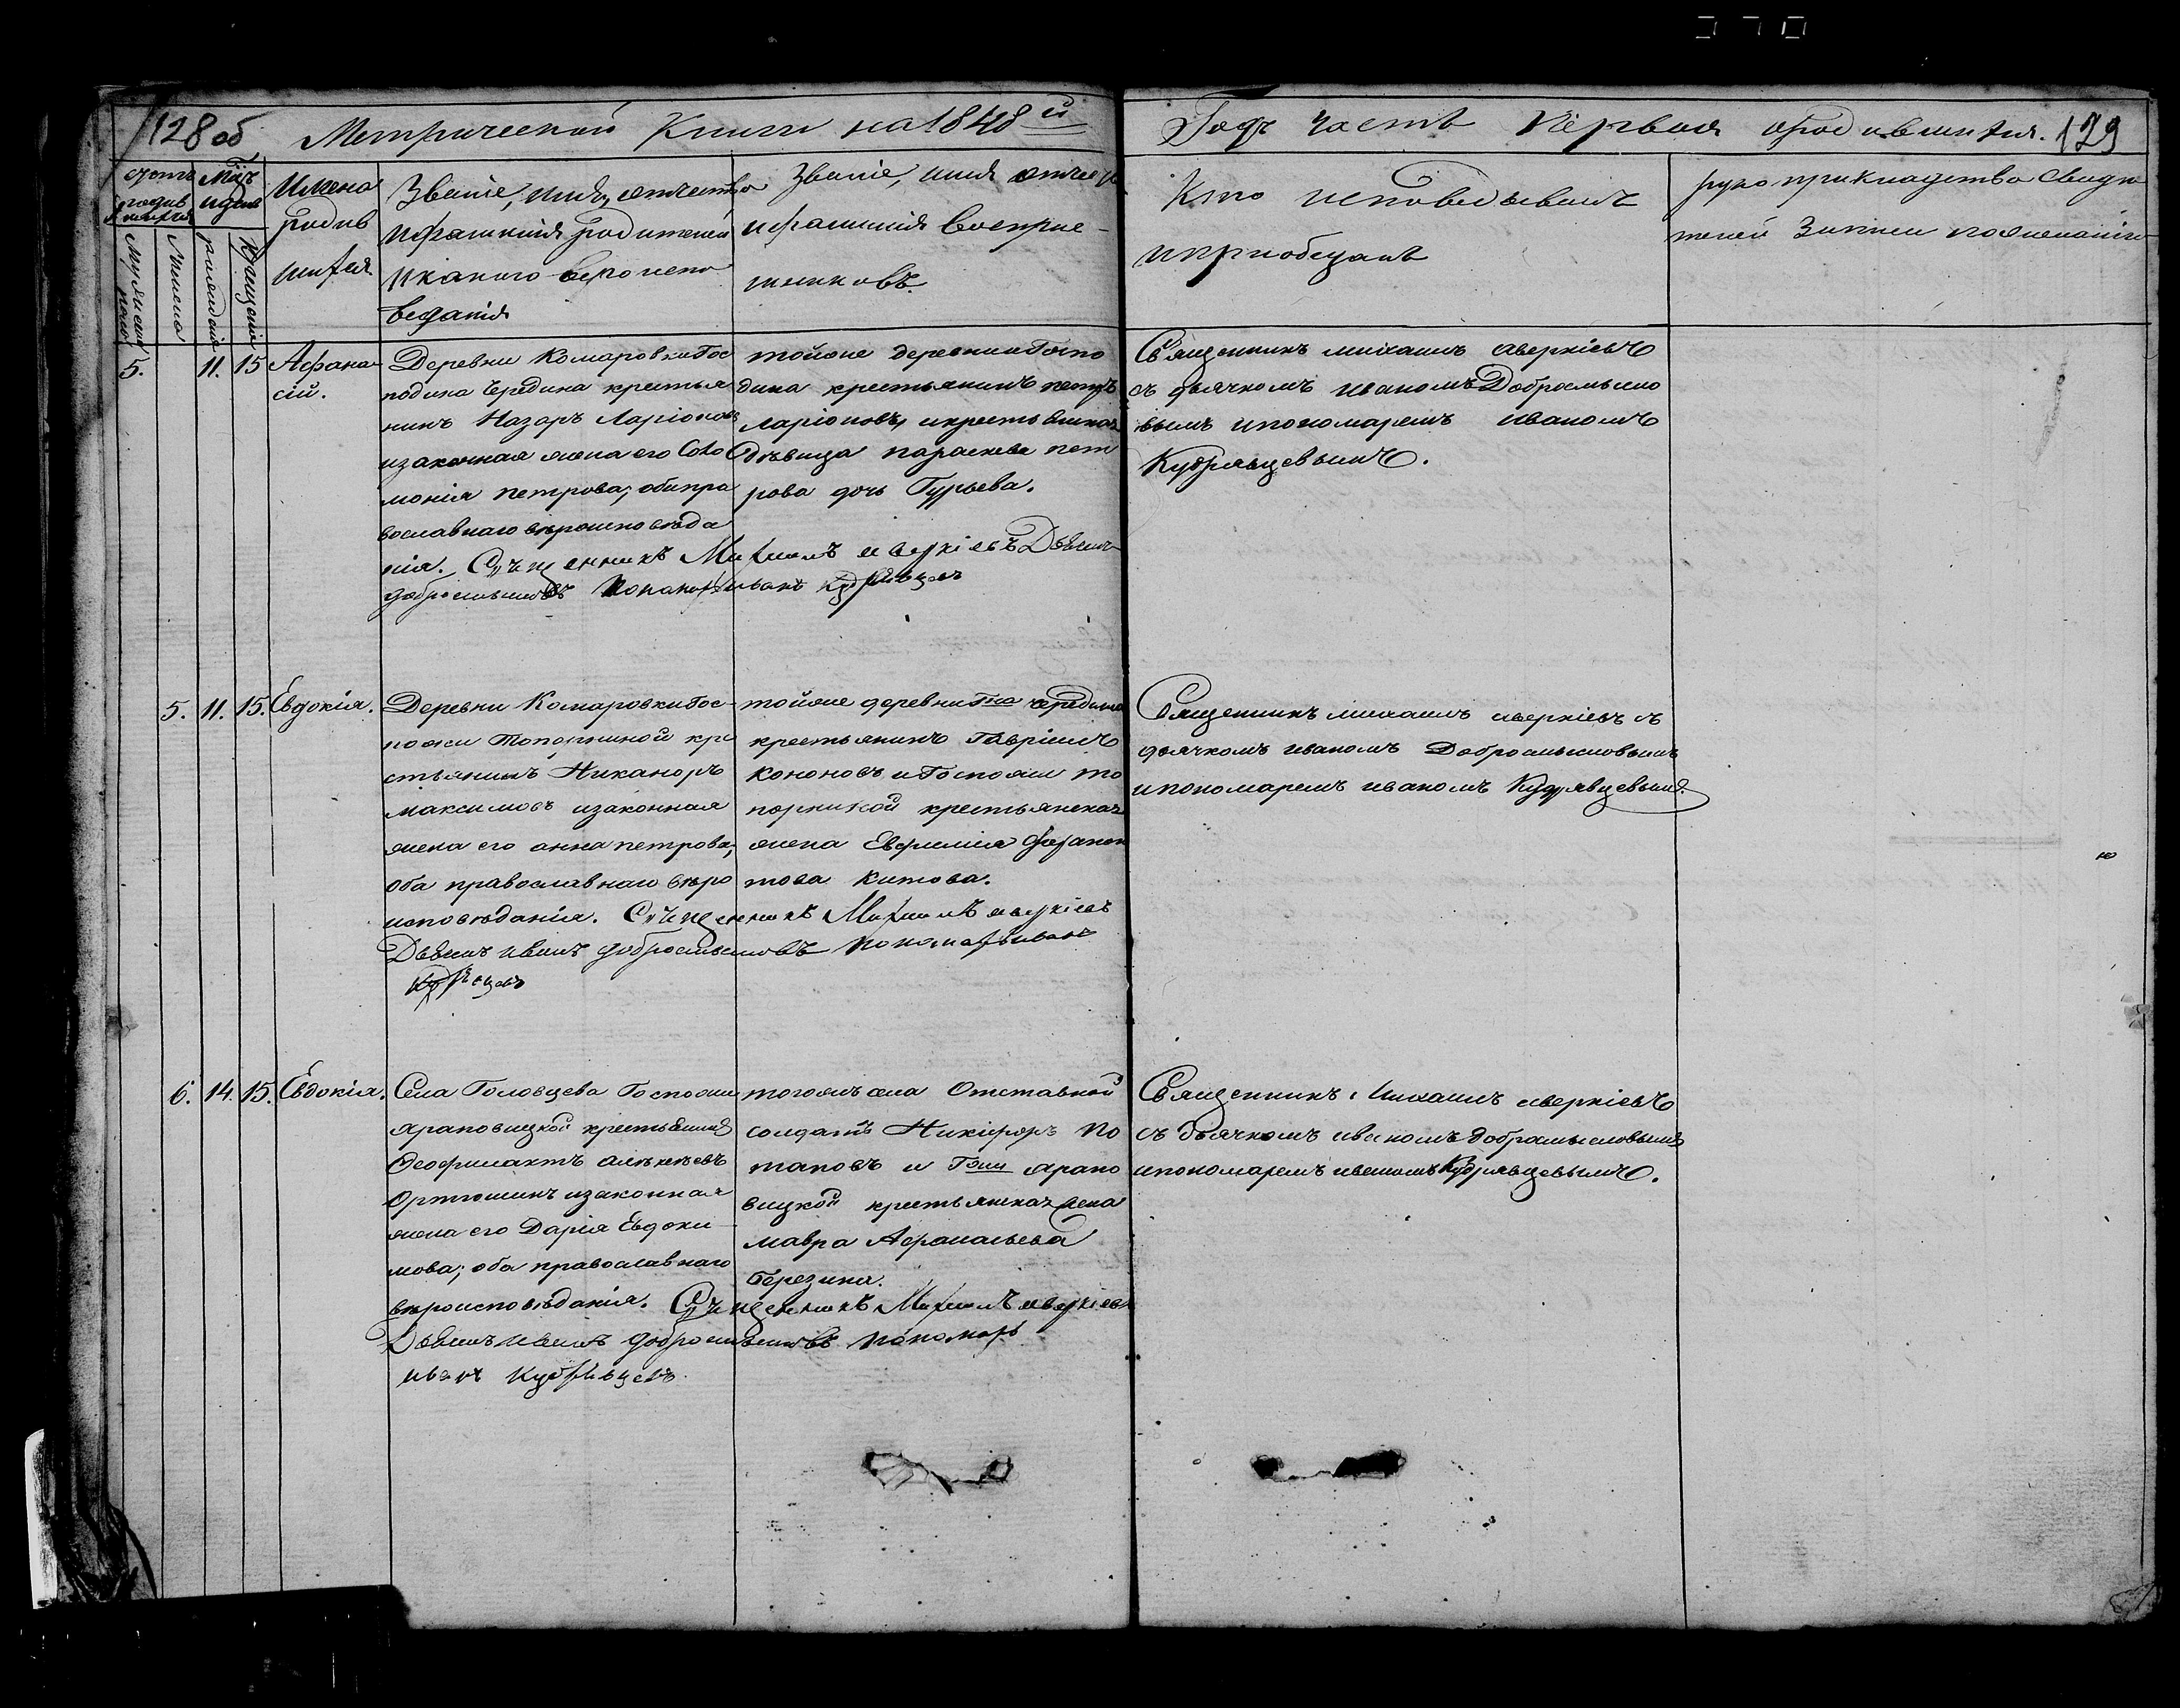 128 об Метрической Книги на 1848й
Годъ часть Первая о родившихся. 129
Счетъ родившихся
Мѣсяцъ и день
Мужеска пола
Женска
рожденія
Крещенія
Имена
родив
шихся.
Званіе, имя, отчество
и фамилія родителей
и какого веропспо
веданія
Званіе, имя отчес
и фамилія восприе-
мниковъ.
Кто исповедывалъ
и приобщалъ
рукоприкладство свиде
телей записи по желанію
5. 11. 15 Афана
сій.
Деревни Комаровки Гос
подина Чередина крестья
нинъ Назаръ Ларіоновъ
и законная жена его Соло
монія петрова, оба пра
вославнаго вѣроисповѣда
нія. Священникъ Михаилъ Аверкіевъ Дьячекъ
Добромысловъ Пономарь Иванъ Кудрявцевъ
тойже деревни Госпо
дина крестьянинъ петръ
Ларіоновъ, и крестьянская
дѣвица параскева пет
рова дочь Гурьева.
Священникъ михаилъ аверкіевъ
съ дьячкомъ иваномъ Добромысло
вымъ и пономаремъ иваномъ
Кудрявцевымъ.
5. 11. 15. Евдокія.
Деревни Комаровки Гос-
пожи Топорниной кре
стьянинъ Никаноръ
максимовъ и законная
жена его анна петрова,
оба православнаго вѣро
исповѣданія. Священникъ Михаилъ аверкіевъ
Дьячекъ иванъ добромысловъ пономарь иванъ
Кудрявцевъ
тойже деревни Гна чередина
крестьянинъ Гавріилъ
Кононовъ и Госпожи то
порниной крестьянская
жена Евфимія
това Китова.
Священникъ михаилъ аверкіевъ съ
дьячкомъ иваномъ Добромысловымъ
и пономаремъ иваномъ Кудрявцевымъ.
6. 14. 15. Евдокія.
Села Головцева Госпожи
яраповицкой крестьянинъ
Феофилактъ алексѣевъ
Ортюшинъ и законная
жена его Дарія Евдоки-
мова; оба православнаго
вѣроисповѣданія. Священникъ Михаилъ аверкіевъ
Дьячекъ иванъ добромысловъ пономарь
иванъ Кудрявцевъ.
тогожъ села Отставной
солдатъ Никифоръ По
таповъ и Гжи ярапо
вицкой крестьянская жена
мавра Афанасьева
Березина.
Священникъ михаилъ аверкіевъ
съ дьячкомъ иваномъ добромысловымъ
и пономаремъ иваномъ Кудрявцевымъ.